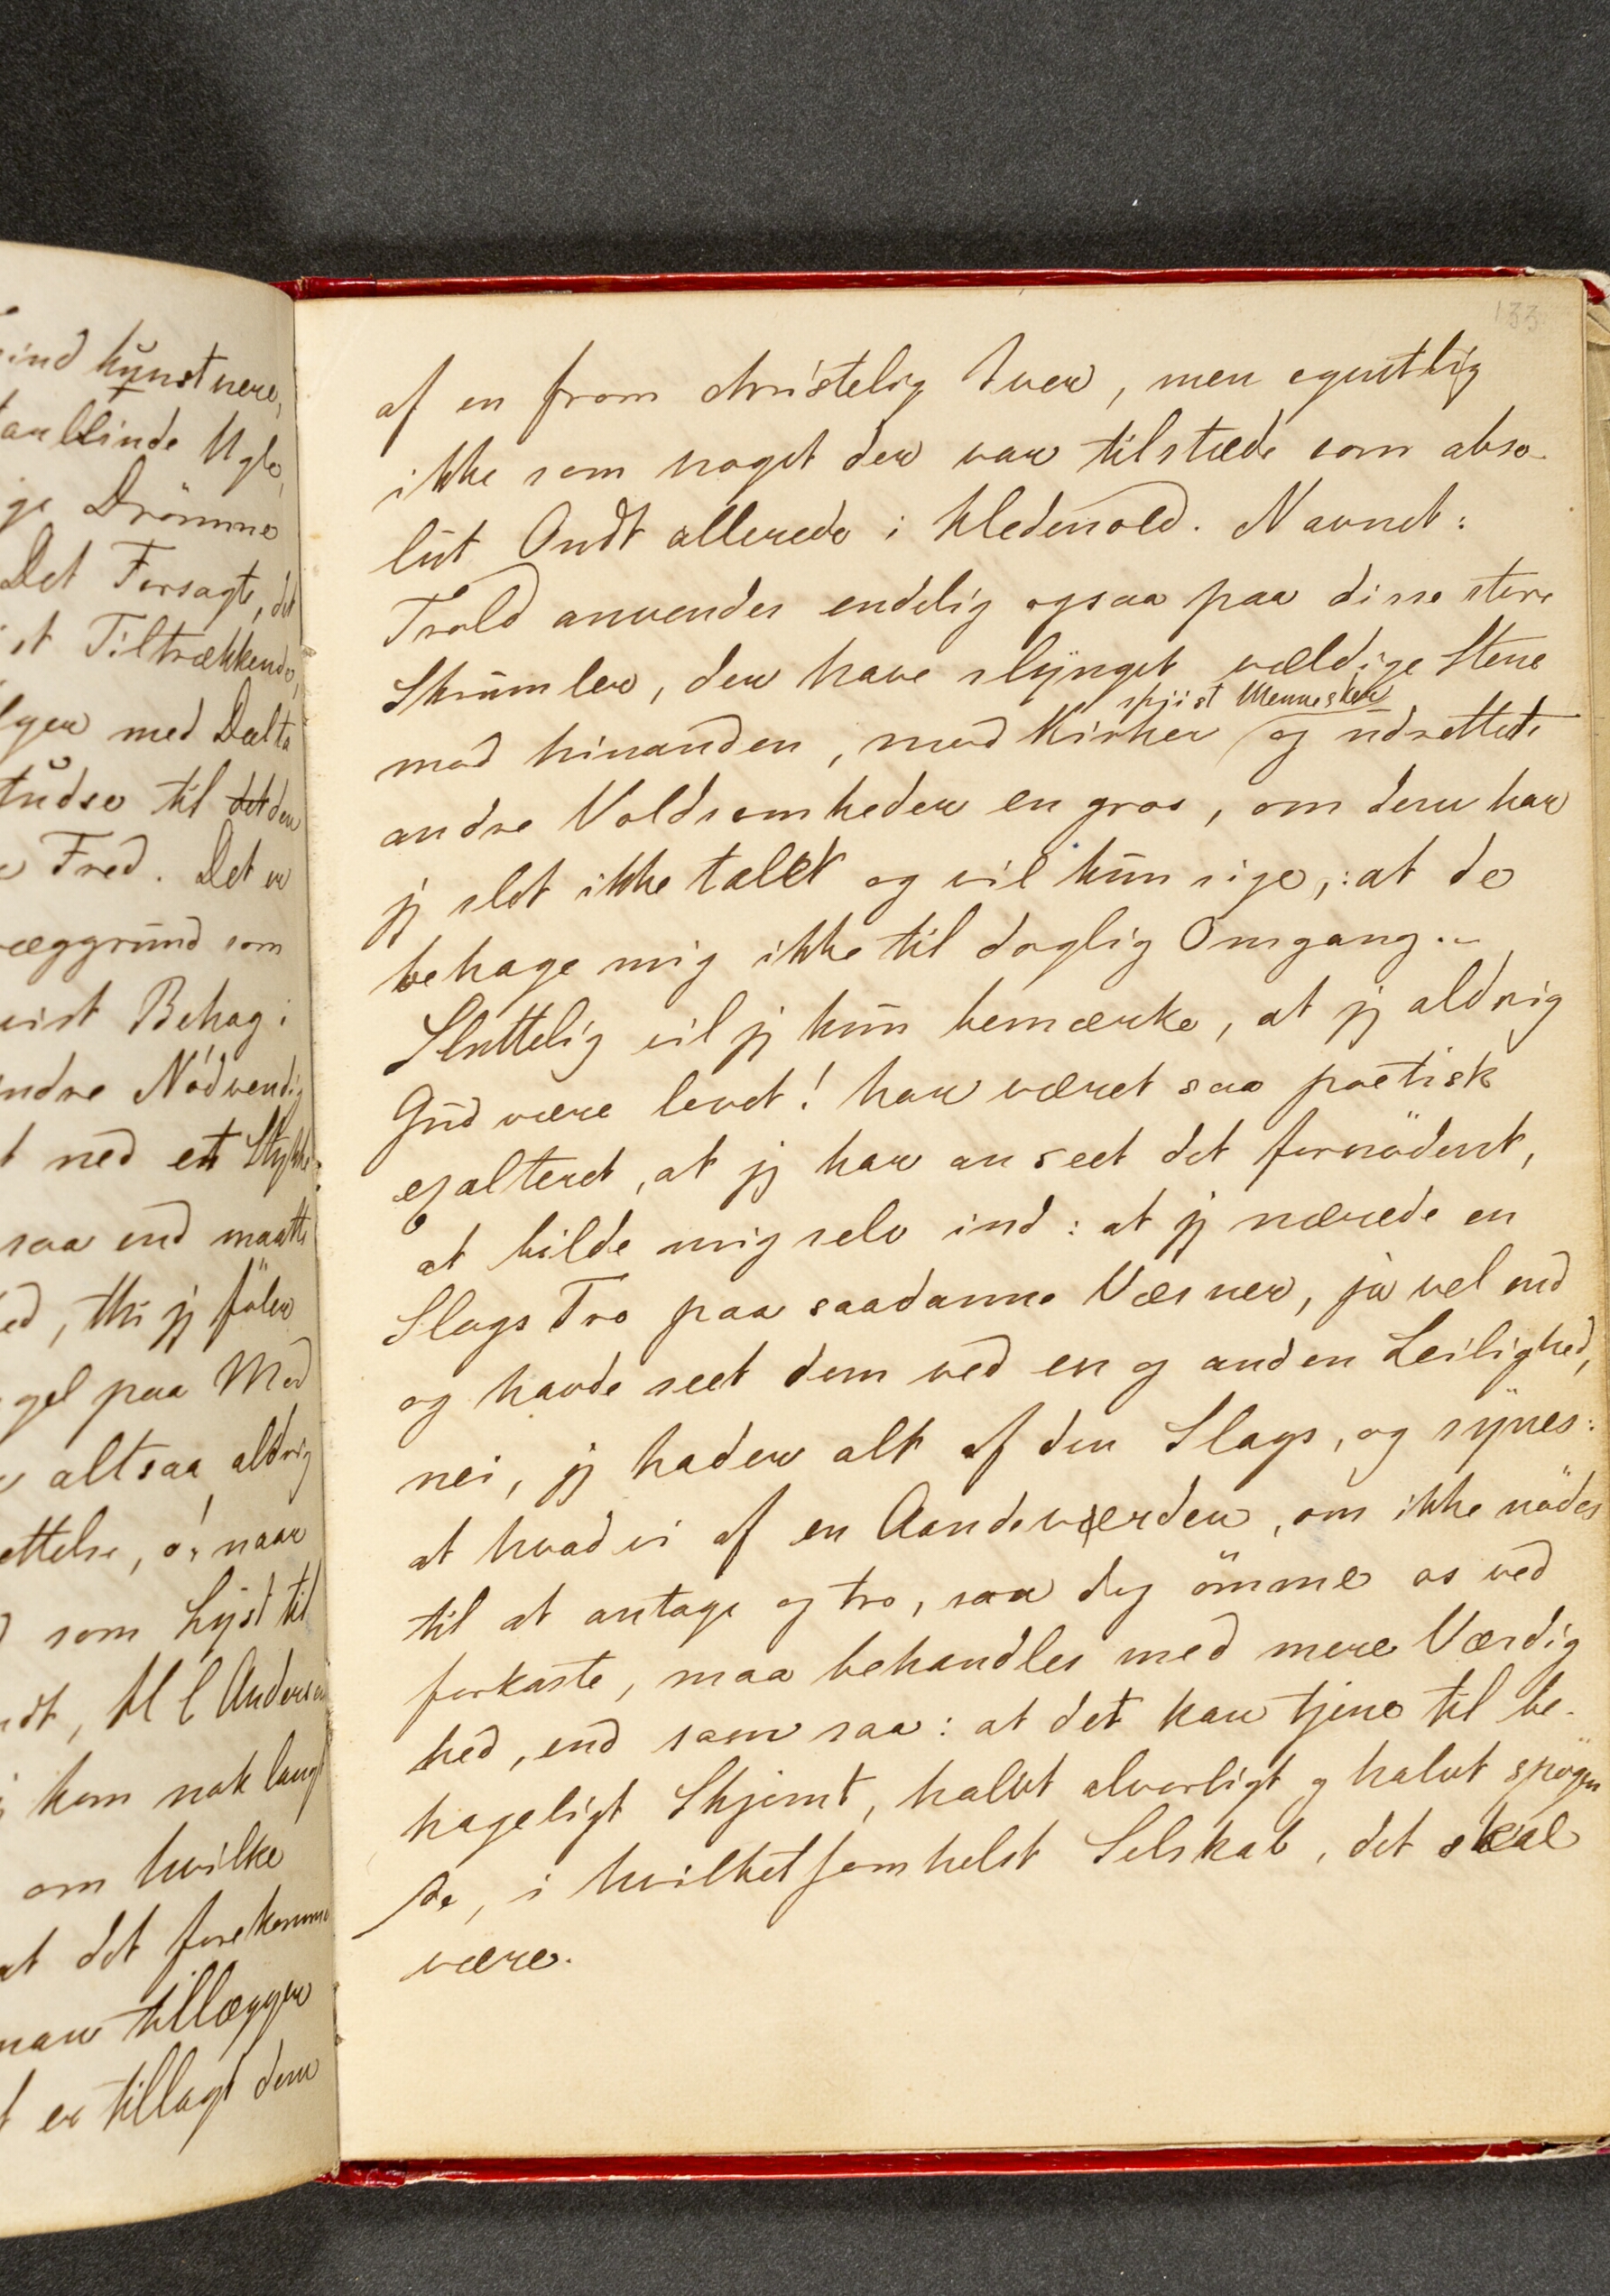 ind kunstnere,
Ugle,
ge Drömme
Det Forsagte, det
st Tiltrækkende,
lger med Dalta
tudse til det den
Fred. Det er
æggrund som
vist Behag i
ndre Nödvendig
ned et Stykke
saa end maatte
ed, thi jeg föler
gel paa Mod
altsaa aldrig
ettelse, o: naar
som Lyst til
ndt, H C Andersen
kom nok langt
om hvilke
at det forekomme
man tillægger
t er tillagt dem
133
af en from christelig Iver, men egentlig
ikke som noget der var tilstæde som abso-
lut Ondt allerede i Hedenold. Navnet:
Trold anvendes endelig ogsaa paa disse store
Skrumler, der have slynget vældige Stene
spiist Mennesker
mod hinanden, mod Kirker og udrettet
andre Voldsomheder en gros, om dem har
jeg slet ikke talet og vil kun sige,: at de
behage mig ikke til daglig Omgang.-
Sluttelig vil jeg kun bemærke, at jeg aldrig
Gud være lovet! har været saa poetisk
exalteret, at jeg har anseet det fornödent,
at bilde mig selv ind: at jeg nærede en
Slags Tro paa saadanne Væsner, ja vel end
og havde seet dem ved en og anden Leilighed,
nei, jeg hader alt af den Slags, og synes:
at hvad vi af en Aandeverden, om ikke nödes
til at antage og tro, saa dog ömme os ved
forkaste, maa behandles med mere Værdig
hed, end som saa: at det kan tjene til be-
hageligt Skjemt, halvt alvorligt og halvt spögen
de, i hvilketsomhelst Selskab, det skal
være.